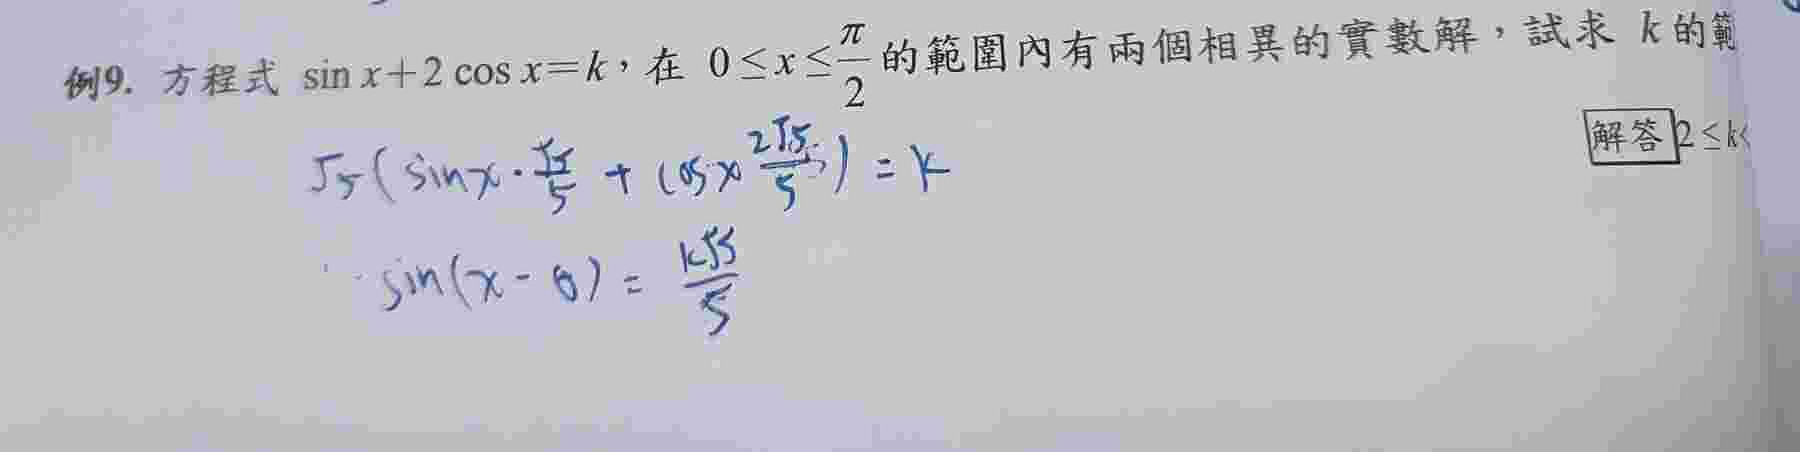 例9. 方程式 sin x+2 cos x=k，在 0≤x≤π/2 的範圍內有兩個相異的實數解，試求 k 的範
解答 2≤k<
√5(sinx·√5/5 + cosx 2√5/5) = k
sin(x-θ) = k√5/5